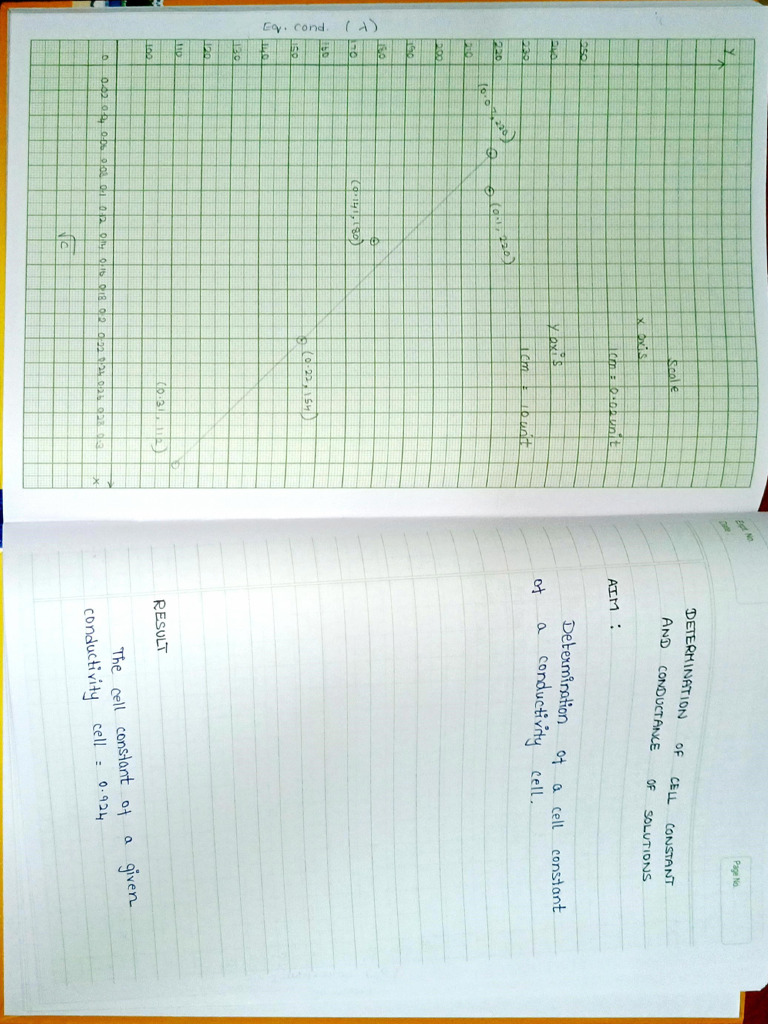 Y
Scale
x axis
1cm = 0.02 unit
y axis
1cm = 10 unit
250
240
230
220
210
200
190
180
170
160
150
140
130
120
110
100
Eq. cond. (λ)
(0.07, 220)
(0.1, 220)
(0.141, 180)
(0.22, 154)
(0.31, 112)
0 0.02 0.04 0.06 0.08 0.1 0.12 0.14 0.16 0.18 0.2 0.22 0.24 0.26 0.28 0.3
X
√C
Expt. No.
Date
Page No.
DETERMINATION OF CELL CONSTANT
AND CONDUCTANCE OF SOLUTIONS
AIM :
Determination of a cell constant
of a conductivity cell.
RESULT
The cell constant of a given
conductivity cell = 0.924